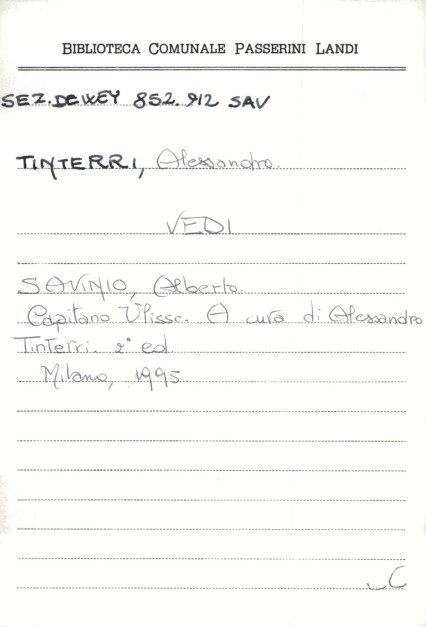 BIBLIOTECA COMUNALE PASSERINI LANDI
SEZ. DEWEY 852.912 SAV
TINTERRI, Alessandro.
VEDI
SAVINIO, Alberto.
Capitano Ulisse. A cura di Alessandro
Tinterri. 2ª ed.
Milano, 1995.
C